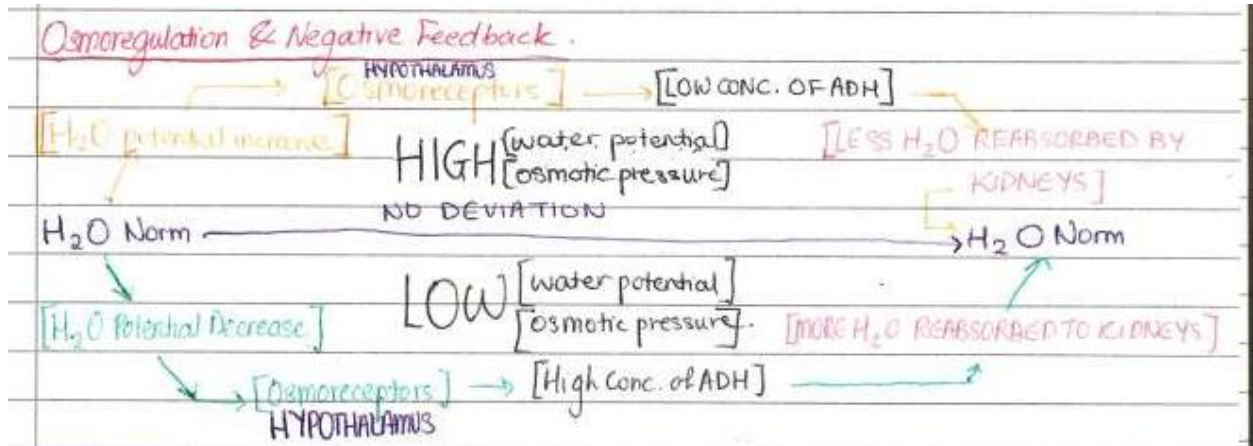 Osmoregulation & Negative Feedback.
HYPOTHALAMUS
[Osmoreceptors]
[LOW CONC. OF ADH]
[H₂O potential increase]
HIGH [water potential]
[osmotic pressure]
[LESS H₂O REABSORBED BY
KIDNEYS]
NO DEVIATION
H₂O Norm
H₂O Norm
LOW [water potential]
[osmotic pressure].
[H₂O Potential Decrease]
[MORE H₂O REABSORBED TO KIDNEYS]
[Osmoreceptors]
[High Conc. of ADH]
HYPOTHALAMUS